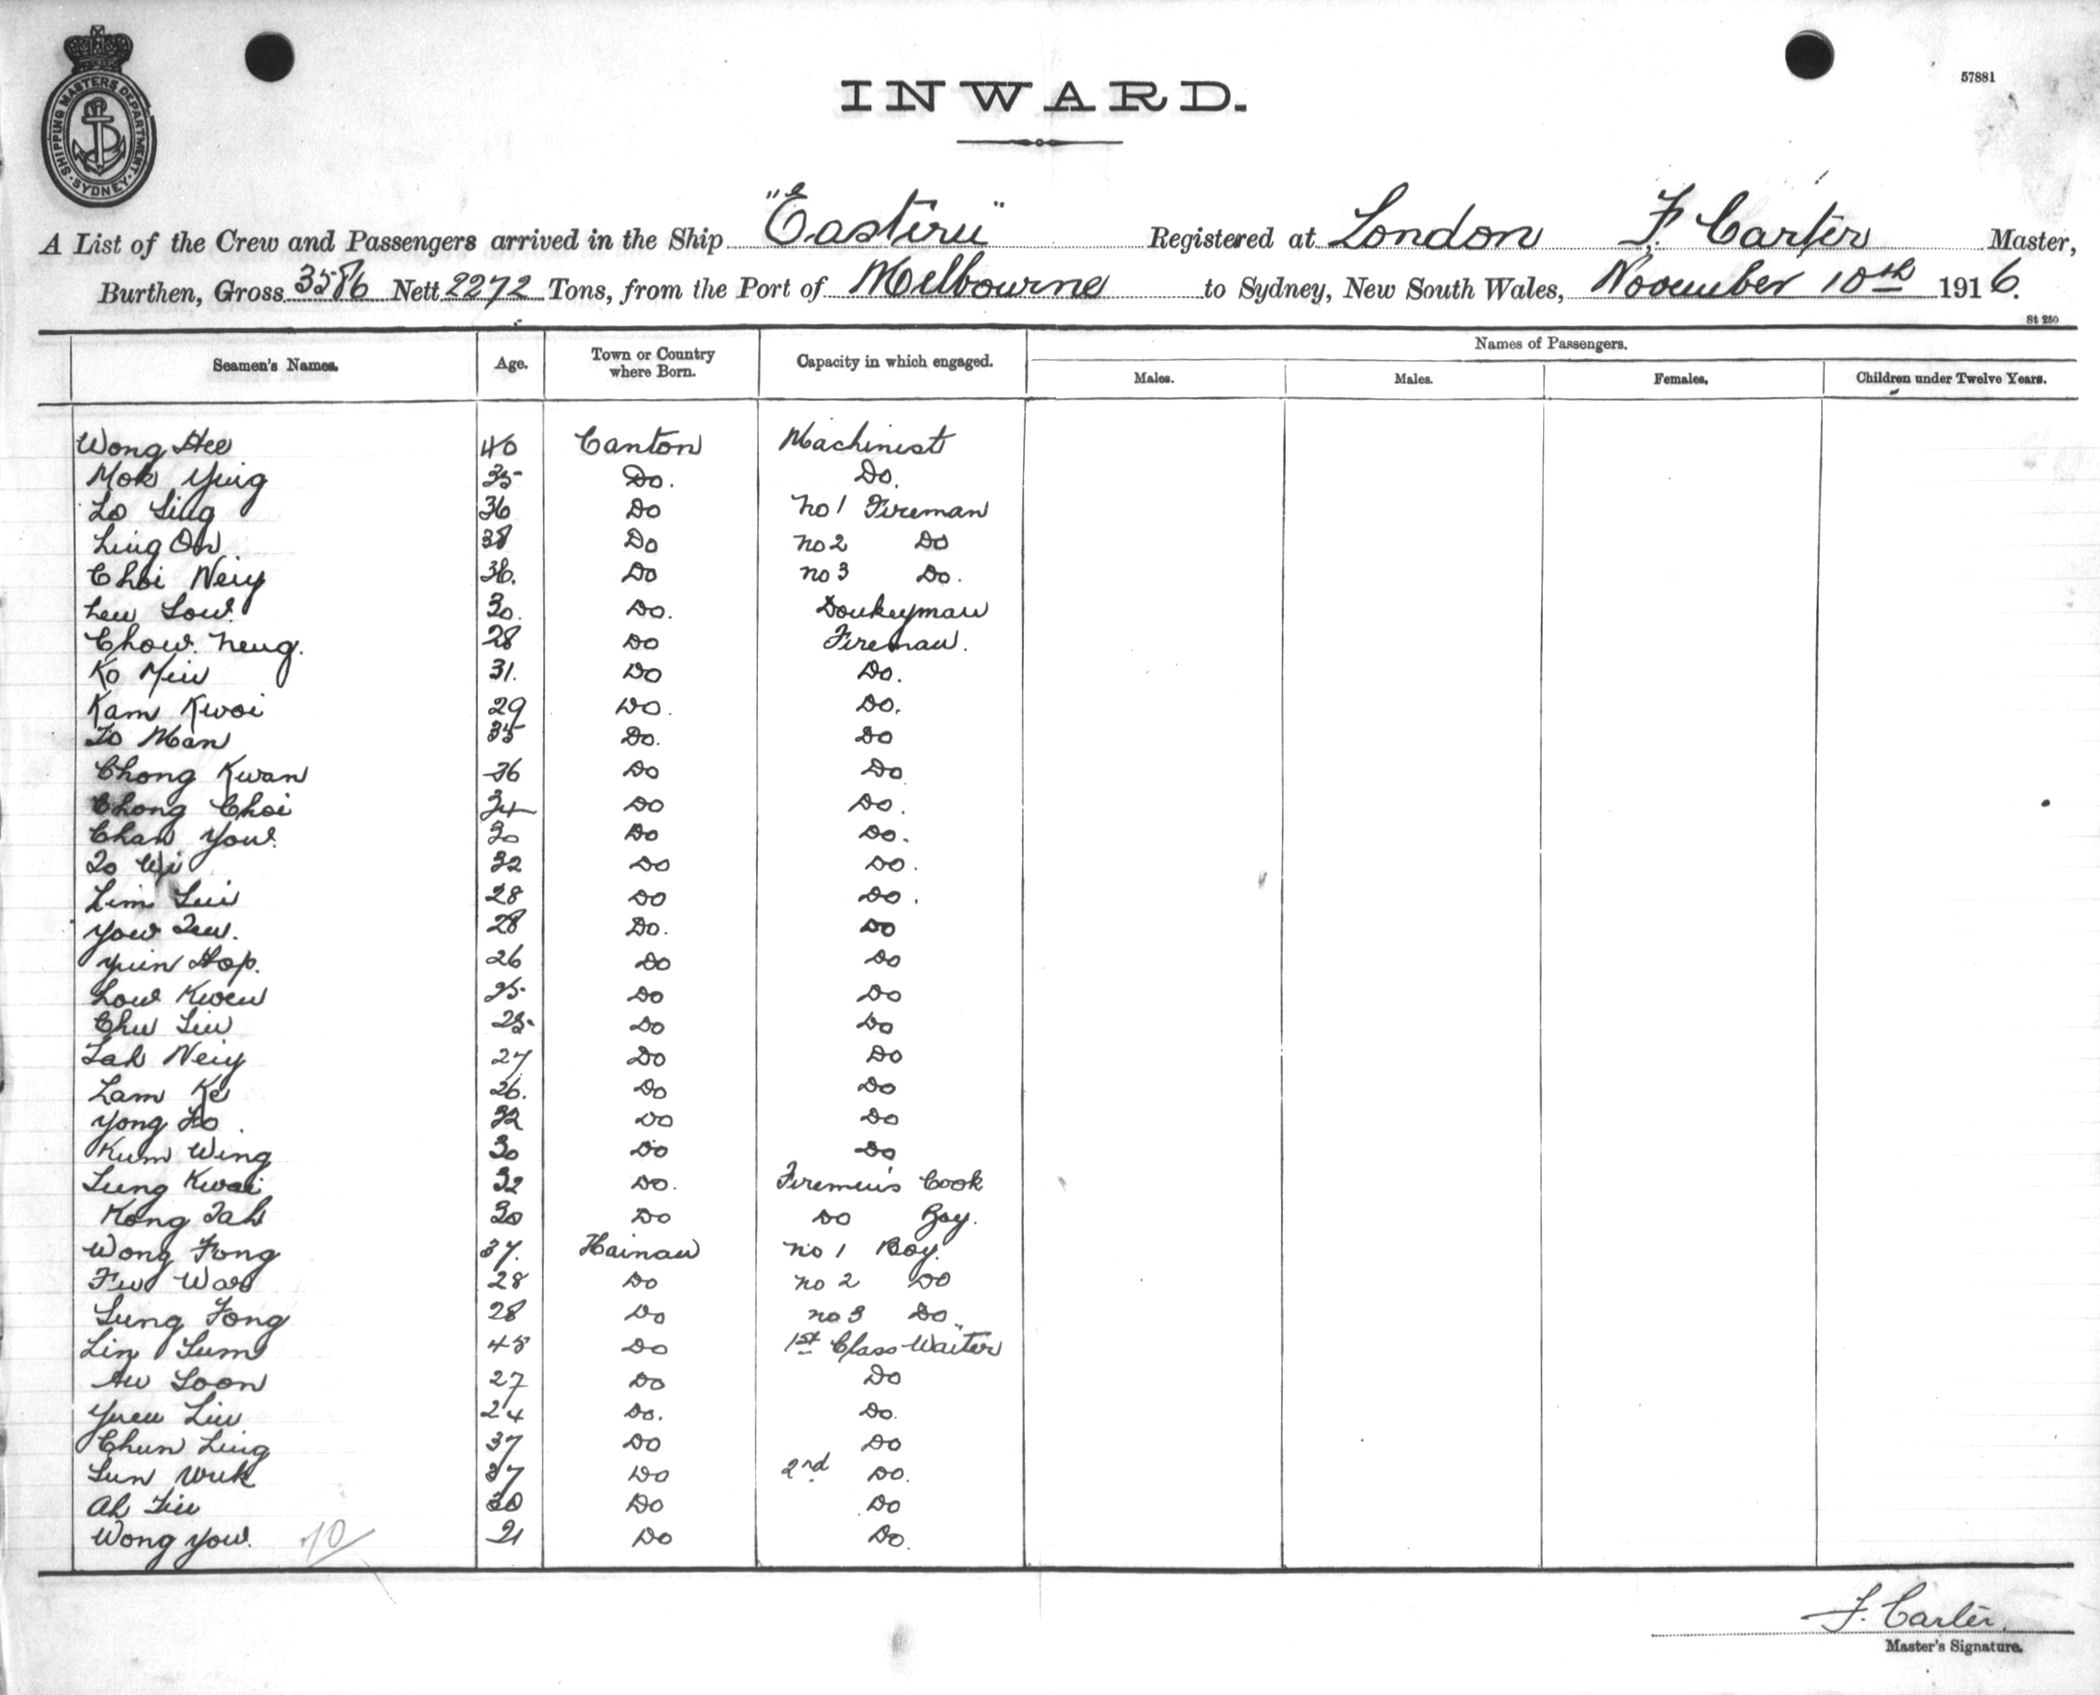 SHIPPING MASTERS DEPARTMENT. SYDNEY.
57881
INWARD.
A List of the Crew and Passengers arrived in the Ship "Eastern" Registered at London F. Carter Master,
Burthen, Gross 3586 Nett 2272 Tons, from the Port of Melbourne to Sydney, New South Wales, November 10th 1916.
St 250
Seamen's Names. Age. Town or Country where Born. Capacity in which engaged. Names of Passengers.
Males. Males. Females. Children under Twelve Years.
Wong Hee 40 Canton Machinist
Mok Ying 35 Do. Do.
Lo Sing 36 Do No 1 Fireman
Ling On 38 Do No 2 Do
Choi Neiy 36. Do No 3 Do.
Leu Sow. 30. Do. Donkeyman
Chow Neug. 28 Do Fireman.
Ko Miu 31. Do Do.
Kam Kwoi 29 Do. Do.
To Man 35 Do. Do
Chong Kwan 36 Do Do
Chong Choi 34 Do Do.
Chan You. 30 Do Do.
To Wi 32 Do Do.
Lim Sui 28 Do Do.
Yow Tew. 28 Do. Do
Yuin Hop. 26 Do Do
Low Kwen 25 Do Do
Chu Siu 25 Do Do
Tak Neiy 27 Do Do
Lam Ke 26. Do Do
Yong Ho. 32 Do Do
Kum Wing 30 Do Do
Sung Kwai 32 Do. Firemen's Cook
Kong Tak 30 Do Do Boy.
Wong Fong 37. Hainan No 1 Boy.
Fw Wao 28 Do No 2 Do
Sung Fong 28 Do No 3 Do.
Lin Sum 45 Do 1st Class Waiter
Au Soon 27 Do Do
Yuen Liu 24 Do. Do.
Chun Ling 37 Do Do
Sun Wuk 37 Do 2nd Do.
Ah Liu 30 Do Do
Wong You. 70 21 Do Do.
F. Carter
Master's Signature.